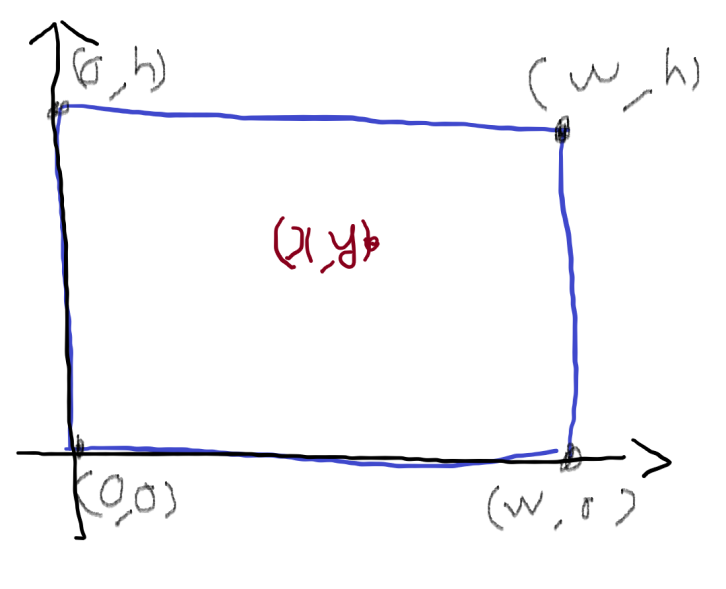 (0,h)
(w,h)
(x,y)
(0,0)
(w,0)